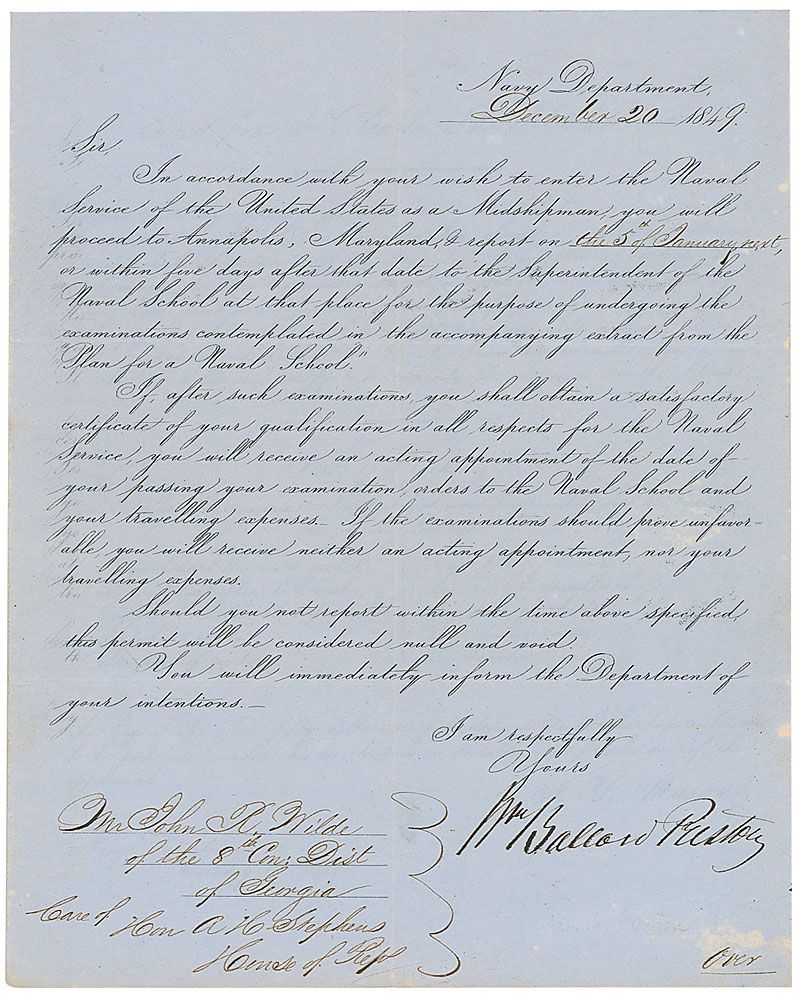 Navy Department,
December 20 1849.
Sir,
In accordance with your wish to enter the Naval
Service of the United States as a Midshipman, you will
proceed to Annapolis, Maryland, & report on the 5th of January next,
or within five days after that date, to the Superintendent of the
Naval School at that place for the purpose of undergoing the
examinations contemplated in the accompanying extract from the
"Plan for a Naval School."
If, after such examinations, you shall obtain a satisfactory
certificate of your qualification in all respects for the Naval
Service, you will receive an acting appointment of the date of
your passing your examination, orders to the Naval School and
your travelling expenses. If the examinations should prove unfavor-
able you will receive neither an acting appointment, nor your
travelling expenses.
Should you not report within the time above specified,
this permit will be considered null and void.
You will immediately inform the Department of
your intentions.
I am respectfully
Yours
Wm Ballard Preston
Mr John R. Wilde
of the 8th Con: Dist
of Georgia
Care of Hon A H Stephens
House of Reps
Over